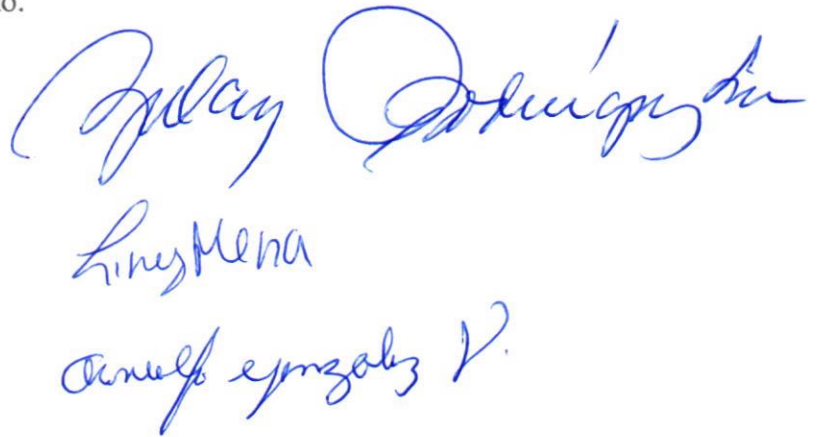 o.
Zulay Rodríguez Lu
Liney Mena
Arnulfo González V.